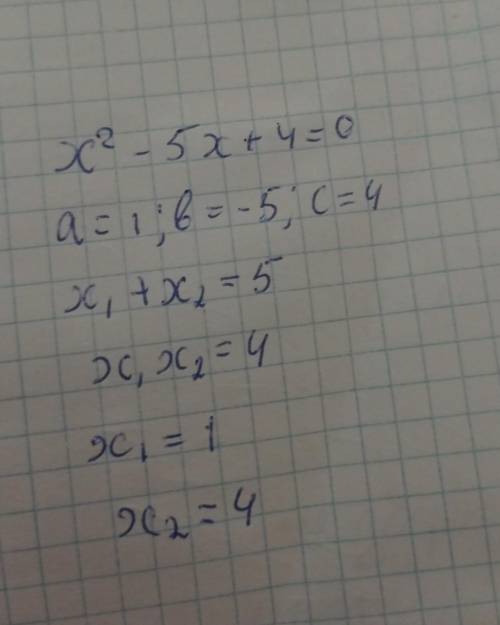 x² - 5x + 4 = 0
a = 1; b = -5; c = 4
x₁ + x₂ = 5
x₁ x₂ = 4
x₁ = 1
x₂ = 4